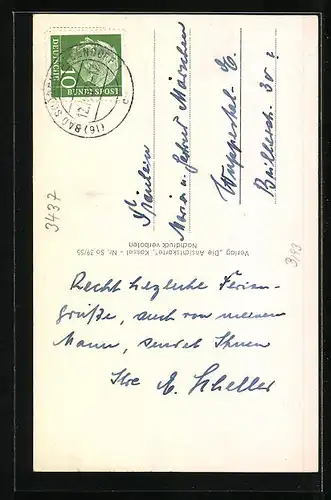 DEUTSCHE
BUNDESPOST
10
(16) BAD SO
12.
c
Fräulein
Maria u. Gertrud
Wuppertal-E.
30 a
3437
3/93
Verlag „Die Ansichtskarte", Kassel - Nr. So 39/55
Nachdruck verboten
Recht herzliche Ferien-
grüße, auch von meinem
Mann, sendet Ihnen
Ihre E. Scheller